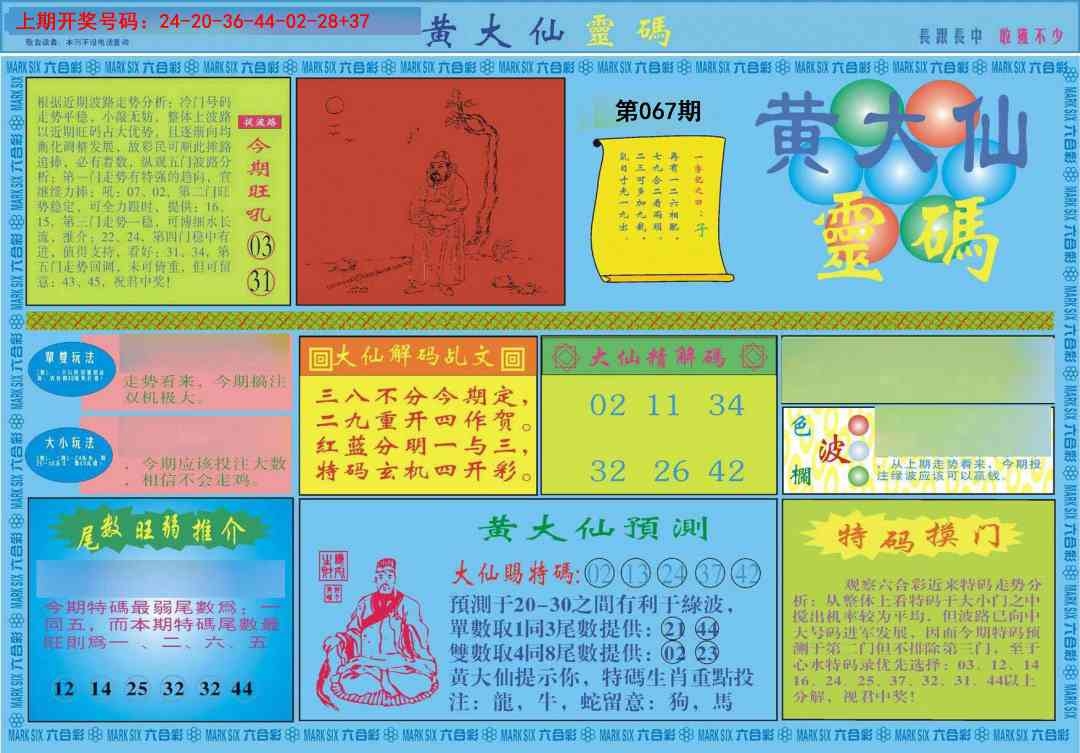 上期开奖号码：24-20-36-44-02-28+37
敬告读者：本刊不设电话查询
黄大仙靈碼
長跟長中 收獲不少
MARK SIX 六合彩
根据近期波路走势分析：冷门号码
走势平稳，小敲无妨，整体上波路
以近期旺码占大优势，且逐渐向均
衡化调整发展，故彩民可顺此推路
追捧，必有着数，纵观五门波路分
析：第一门走势有特强的趋向，宜
继续力捧：吼：07、02，第二门旺
势稳定，可全力跟时，提供：16、
15，第三门走势一稳，可搏细水长
流，推介：22、24，第四门稳中有
进，值得支持，看好：31、34，第
五门走势回调，未可倚重，但可留
意：43、45，祝君中奖！
今期旺吼
03
31
第067期
一字记之曰：子
再有一二六相配
七九合二看两头
黄大仙
靈碼
單雙玩法
走势看来，今期搞注
双机极大。
大小玩法
，今期应该投注大数
，相信不会走鸡。
大仙解码乩文
三八不分今期定，
二九重开四作贺。
红蓝分明一与三，
特码玄机四开彩。
大仙精解碼
02 11 34
32 26 42
色波欄
，从上期走势看来，今期投
注绿波应该可以赢钱。
尾数旺弱推介
今期特碼最弱尾數爲：一
同五，而本期特碼尾數最
旺則爲一、二、六、五
12 14 25 32 32 44
黄大仙預測
大仙賜特碼:02 13 24 37 42
預測于20-30之間有利于綠波，
單數取1同3尾數提供：21 44
雙數取4同8尾數提供：02 23
黄大仙提示你，特碼生肖重點投
注：龍，牛，蛇留意：狗，馬
特码摸门
观察六合彩近来特码走势分
析：从整体上看特码于大小门之中
搅出机率较为平均，但波路已向中
大号码进军发展，因而今期特码预
测于第二门但不排除第三门，至于
心水特码录优先选择：03、12、14
16、24、25、37、32、31、44以上
分解，视君中奖！